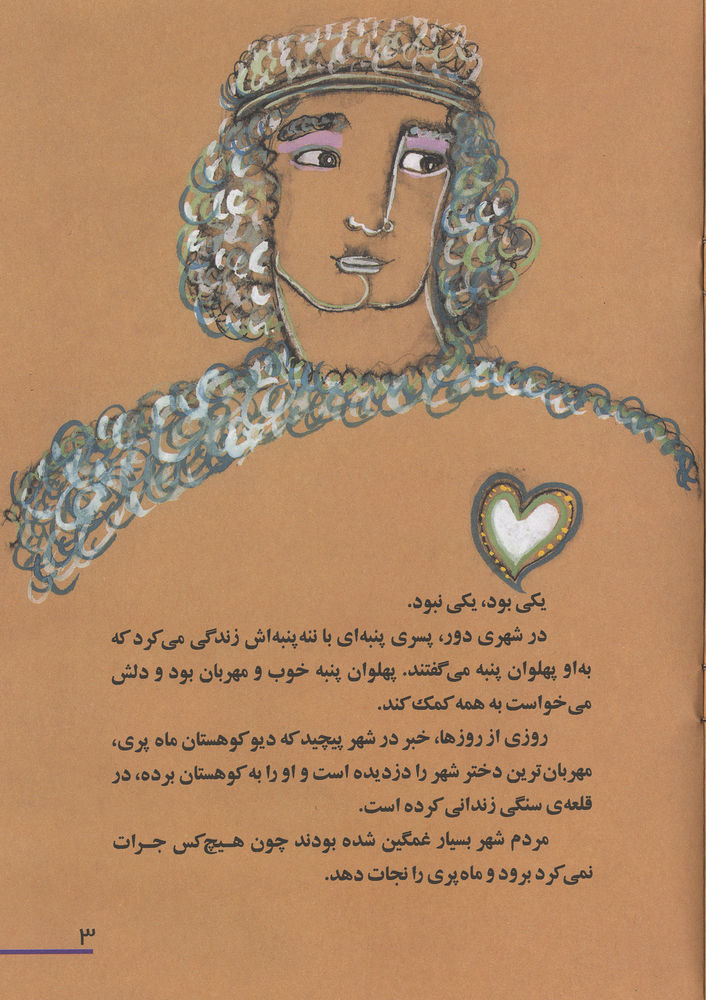 یکی بود، یکی نبود.
در شهری دور، پسری پنبه‌ای با ننه پنبه‌اش زندگی می‌کرد که
به‌او پهلوان پنبه می‌گفتند. پهلوان پنبه خوب و مهربان بود و دلش
می‌خواست به همه کمک کند.
روزی از روزها، خبر در شهر پیچید که دیو کوهستان ماه پری،
مهربان‌ترین دختر شهر را دزدیده است و او را به کوهستان برده، در
قلعه‌ی سنگی زندانی کرده است.
مردم شهر بسیار غمگین شده بودند چون هیچ‌کس جرات
نمی‌کرد برود و ماه‌پری را نجات دهد.
۳